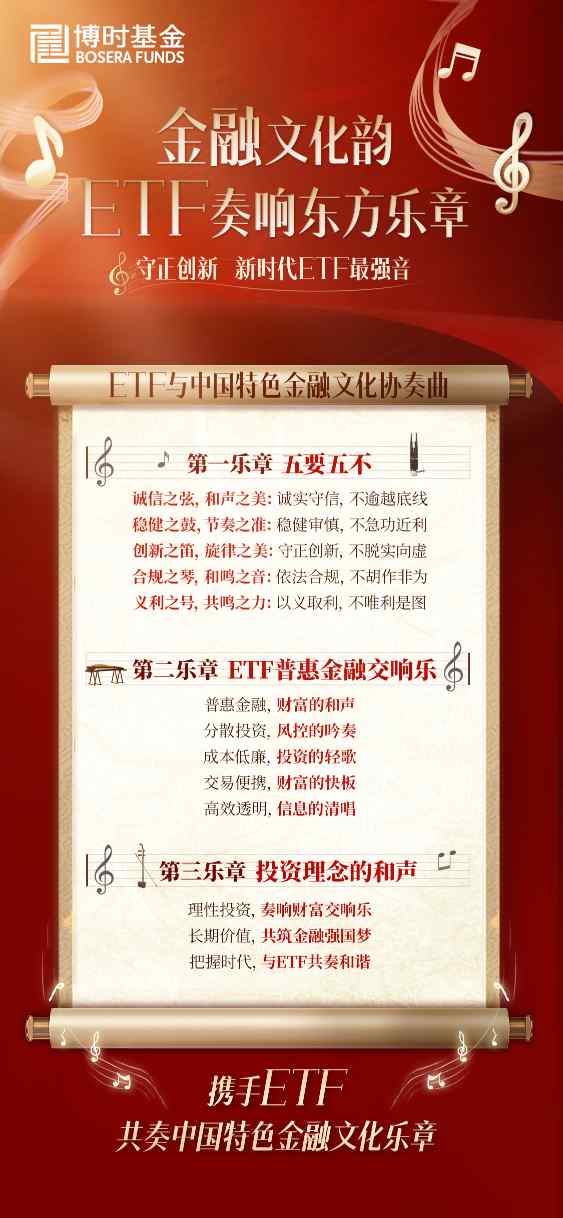 博时基金
BOSERA FUNDS
金融文化韵
ETF奏响东方乐章
守正创新 新时代ETF最强音
ETF与中国特色金融文化协奏曲
第一乐章 五要五不
诚信之弦, 和声之美: 诚实守信, 不逾越底线
稳健之鼓, 节奏之准: 稳健审慎, 不急功近利
创新之笛, 旋律之美: 守正创新, 不脱实向虚
合规之琴, 和鸣之音: 依法合规, 不胡作非为
义利之号, 共鸣之力: 以义取利, 不唯利是图
第二乐章 ETF普惠金融交响乐
普惠金融, 财富的和声
分散投资, 风控的吟奏
成本低廉, 投资的轻歌
交易便携, 财富的快板
高效透明, 信息的清唱
第三乐章 投资理念的和声
理性投资, 奏响财富交响乐
长期价值, 共筑金融强国梦
把握时代, 与ETF共奏和谐
携手ETF
共奏中国特色金融文化乐章